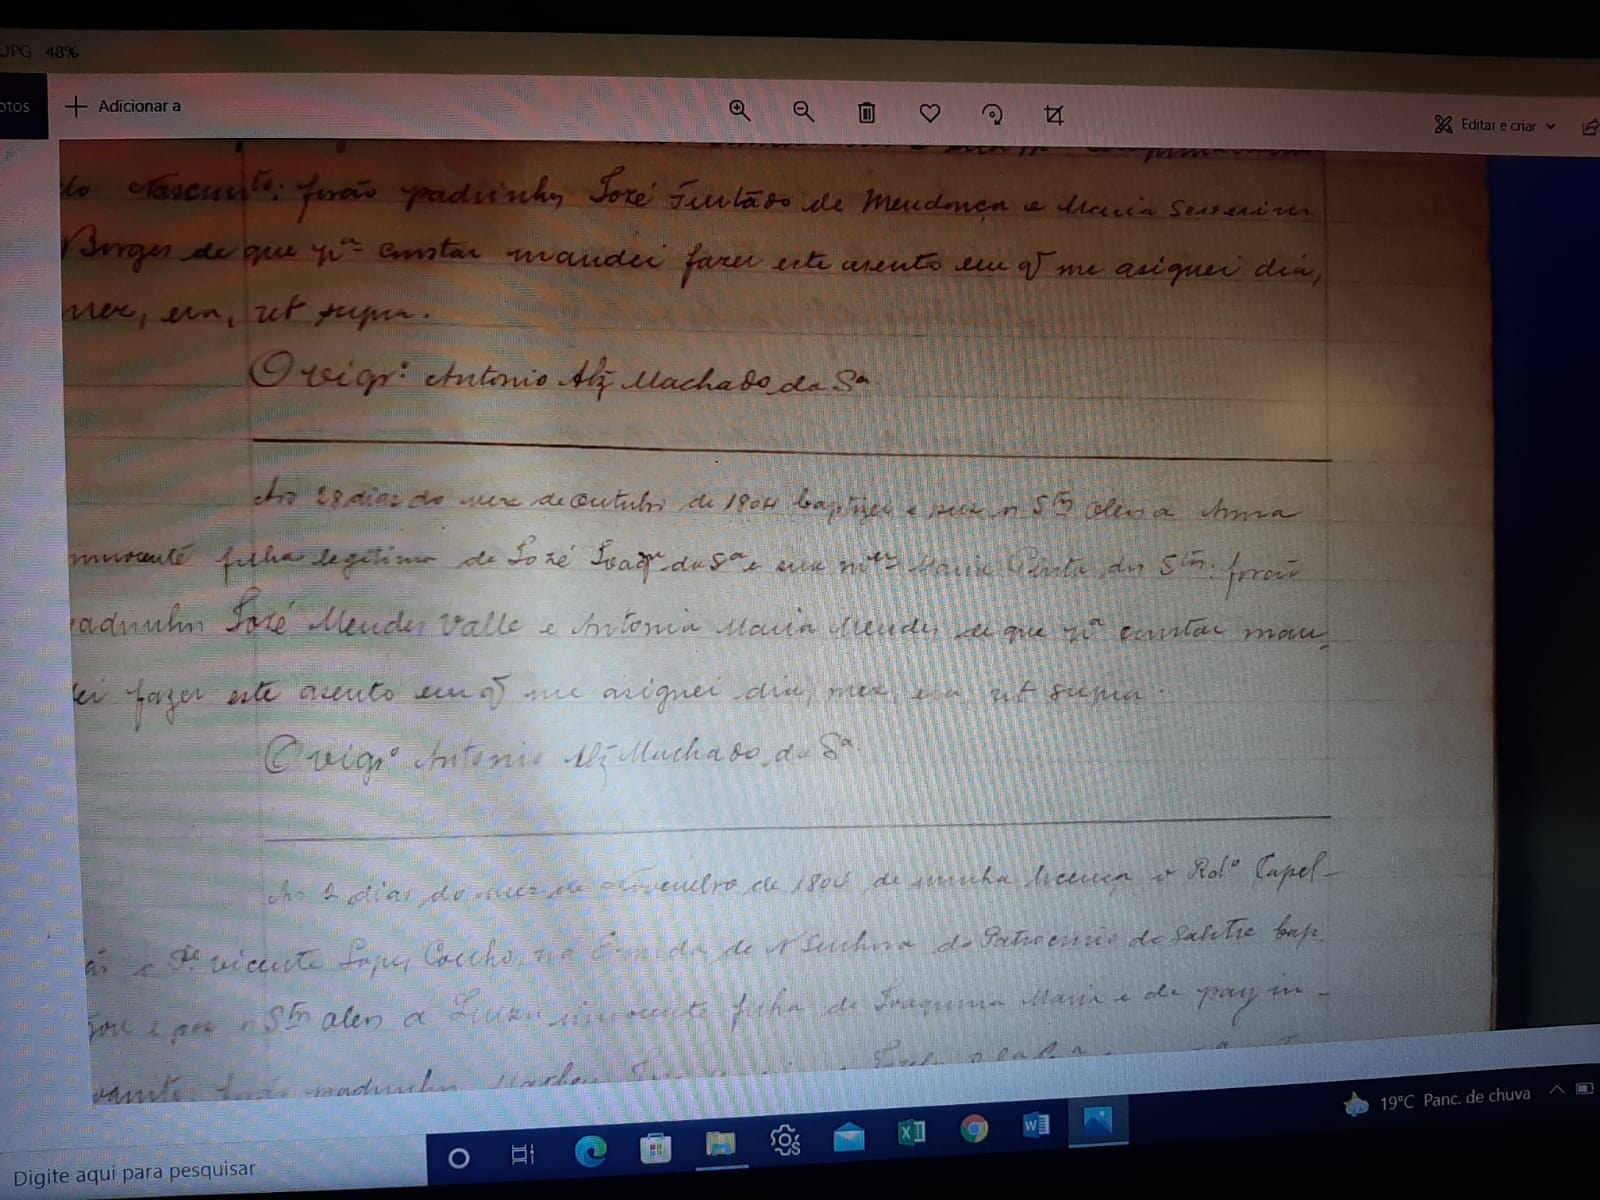 JPG 48%
otos
Adicionar a
Editar e criar
do Nascimto: forão padrinhos José Furtado de Mendonça e Maria Severina
Borges de que pa constar mandei fazer este asento em q me asignei dia,
mez, era, ut supra.
O vigro Antonio Alz Machado da Sa
Aos 28 dias do mez de Outubro de 1804 baptizei e puz os Stos Oleos a Anna
innocente filha legitima de José Joaqm da Sa e sua mer Maria Pinta dos Stos: forão
adrinhos José Mendes Valle e Antonia Maria Mendes de que pa constar man
ei fazer este asento em q me asignei dia, mez, era ut supra.
O vigro Antonio Alz Machado da Sa
Aos 2 dias do mez de Novembro de 1804 de minha licença o Rdo Capel-
ão o Pe Vicente Lopes Coelho, na Ermida de N Senhora do Patrocinio do Salitre bap.
e poz os Stos oleos a Luiza innocente filha de Joaquina Maria e de pay in-
padrinhos
Digite aqui para pesquisar
19°C Panc. de chuva